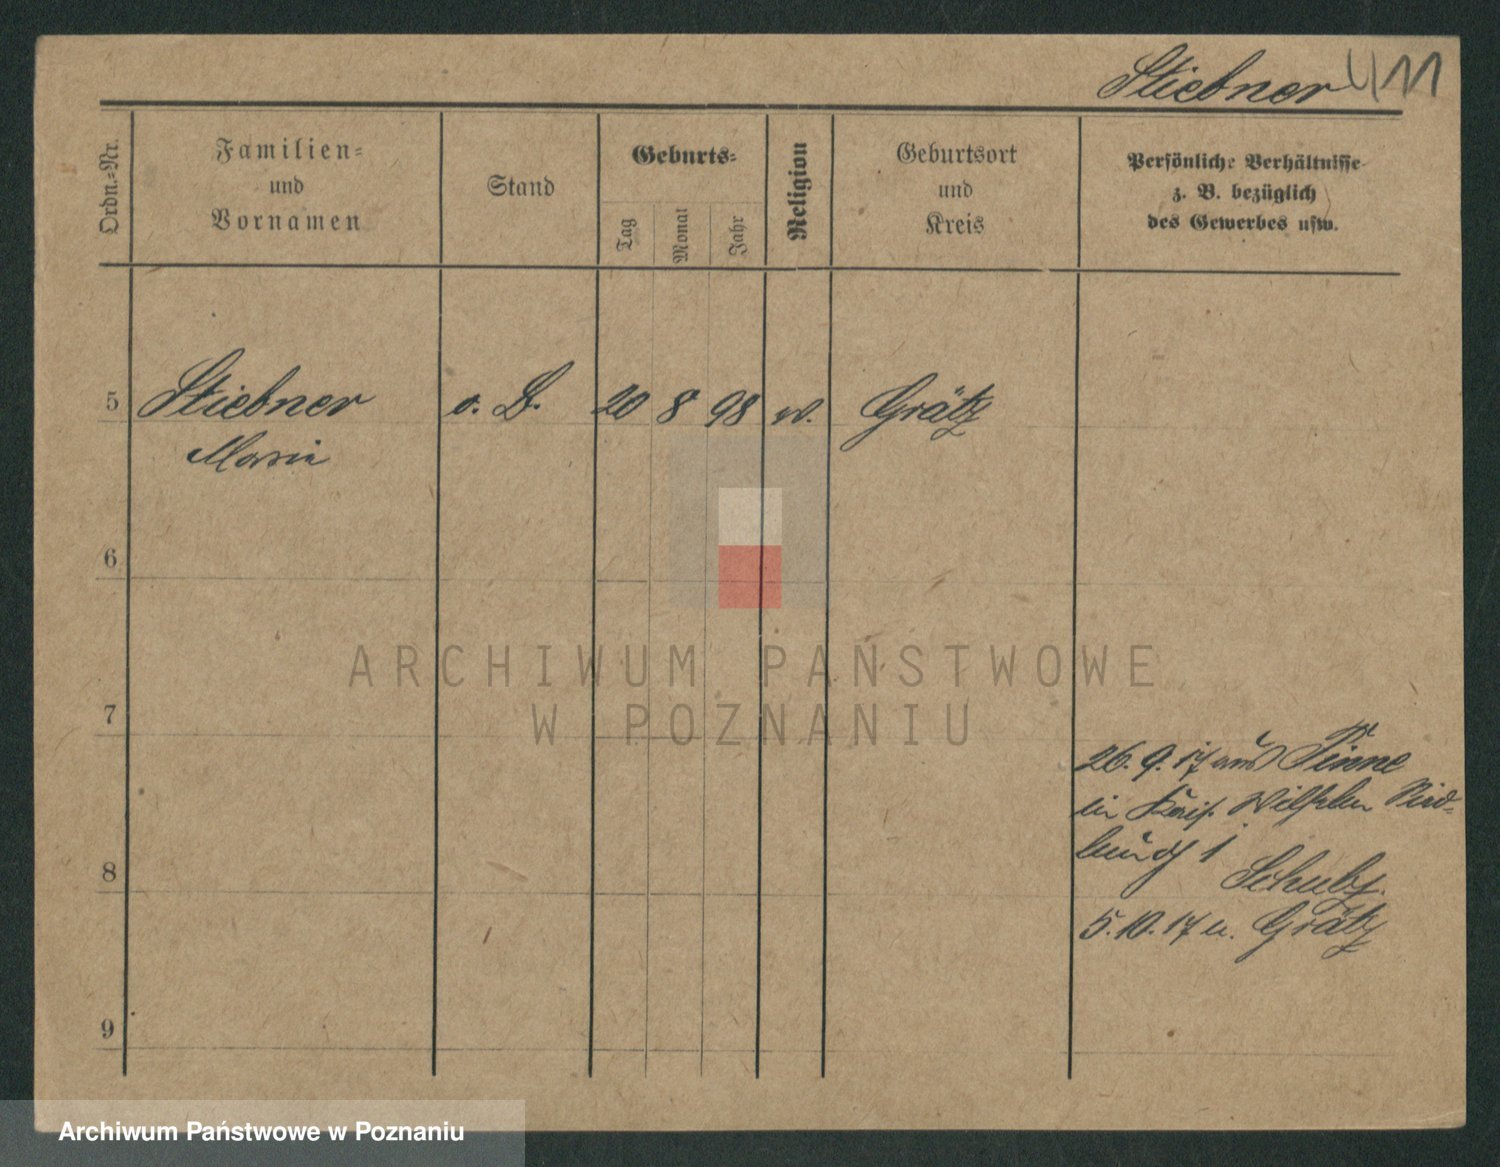 Stiebner 411
Ordn.-Nr.
Familien-
und
Vornamen
Stand
Geburts-
Tag
Monat
Jahr
Religion
Geburtsort
und
Kreis
Persönliche Verhältnisse
z. B. bezüglich
des Gewerbes usw.
5 Stiebner o. B. 20 8 98 Grätz
Marie
6
7
8
9
26. 9. 17 aus Pinne
in Wilhelm
1
Schulz.
5. 10. 17 n. Grätz
ARCHIWUM PAŃSTWOWE
W POZNANIU
Archiwum Państwowe w Poznaniu